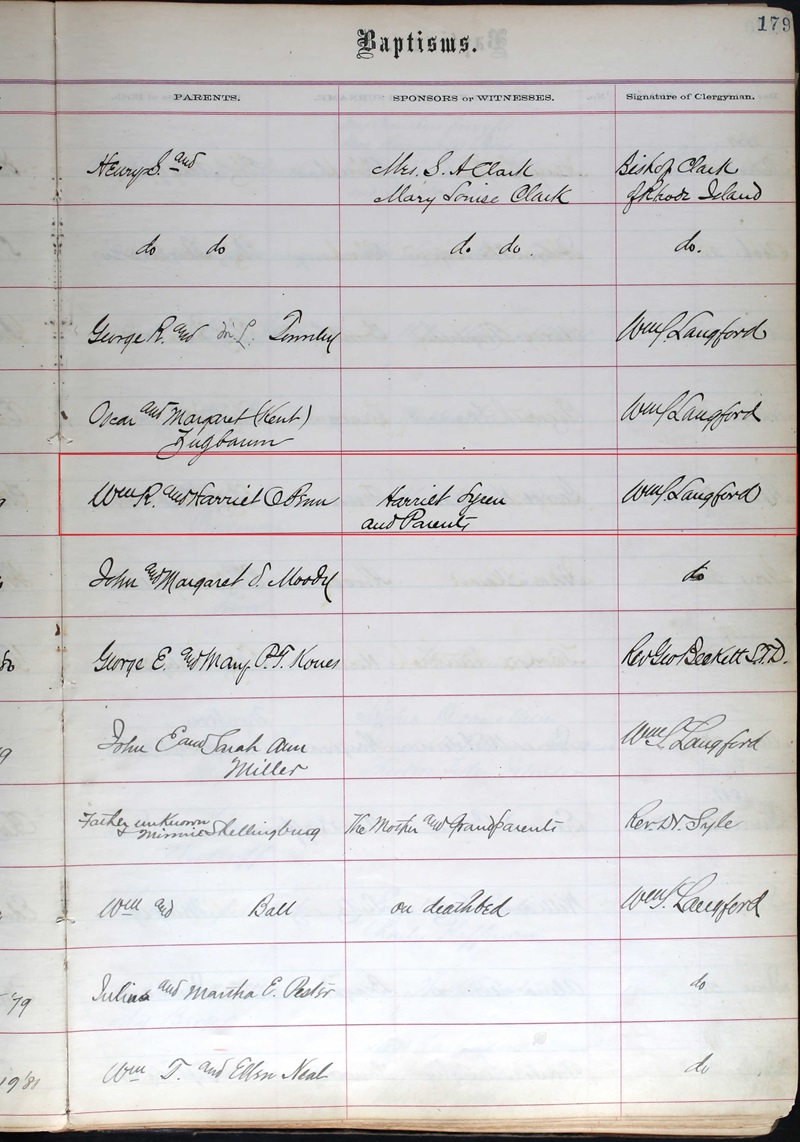 179
Baptisms.
PARENTS. SPONSORS or WITNESSES. Signature of Clergyman.
Henry S. and Mrs. S. A Clark Bishop Clark
Mary Louise Clark of Rhode Island
do do do. do. do.
George R. and L. Townley Wm S. Langford
Oscar and Margaret (Kent) Wm S. Langford
Zugbaum
Wm R. and Harriet O Wm S. Langford
Harriet
and Parents
John and Margaret S. Moody do
George E. and Mary P. T. Rev Geo Beckett S.T.D.
John E and Sarah Ann Wm S Langford
9 Miller
Father unknown The Mother and Grandparents Rev. Dr. Syle
& Minnie Shellingburg
Wm and Ball on deathbed Wm S. Langford
'79 Julius and Martha E. Pester do
19 '81 Wm T. and Ellen Neal do